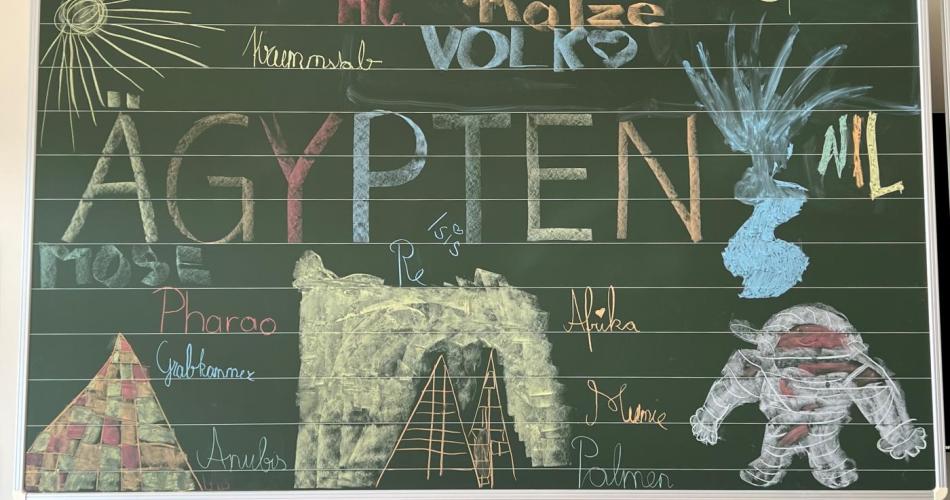 Katze
Krummstab
VOLK
ÄGYPTEN
NIL
ISIS
Re
MOSE
Pharao
Afrika
Grabkammer
Mumie
Anubis
Palmen